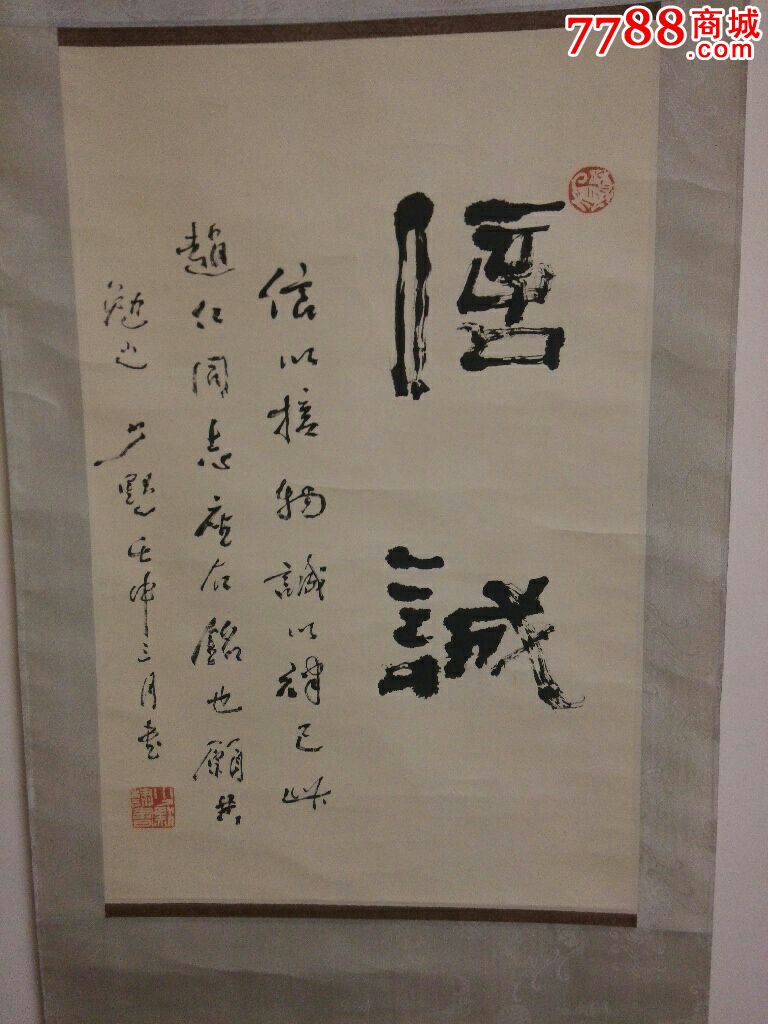 7788商城
.com
信誠
信以接物誠以律己此
趙仁同志座右銘也願共
勉之 少默壬申三月書